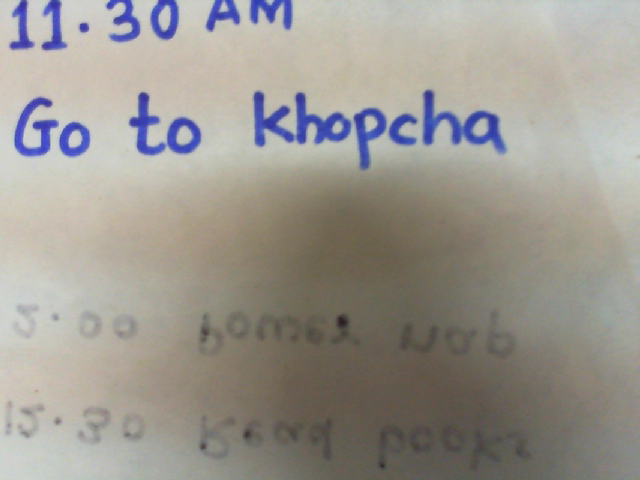 11.30 AM
Go to khopcha
2.00 Power Nap
12.30 Read books